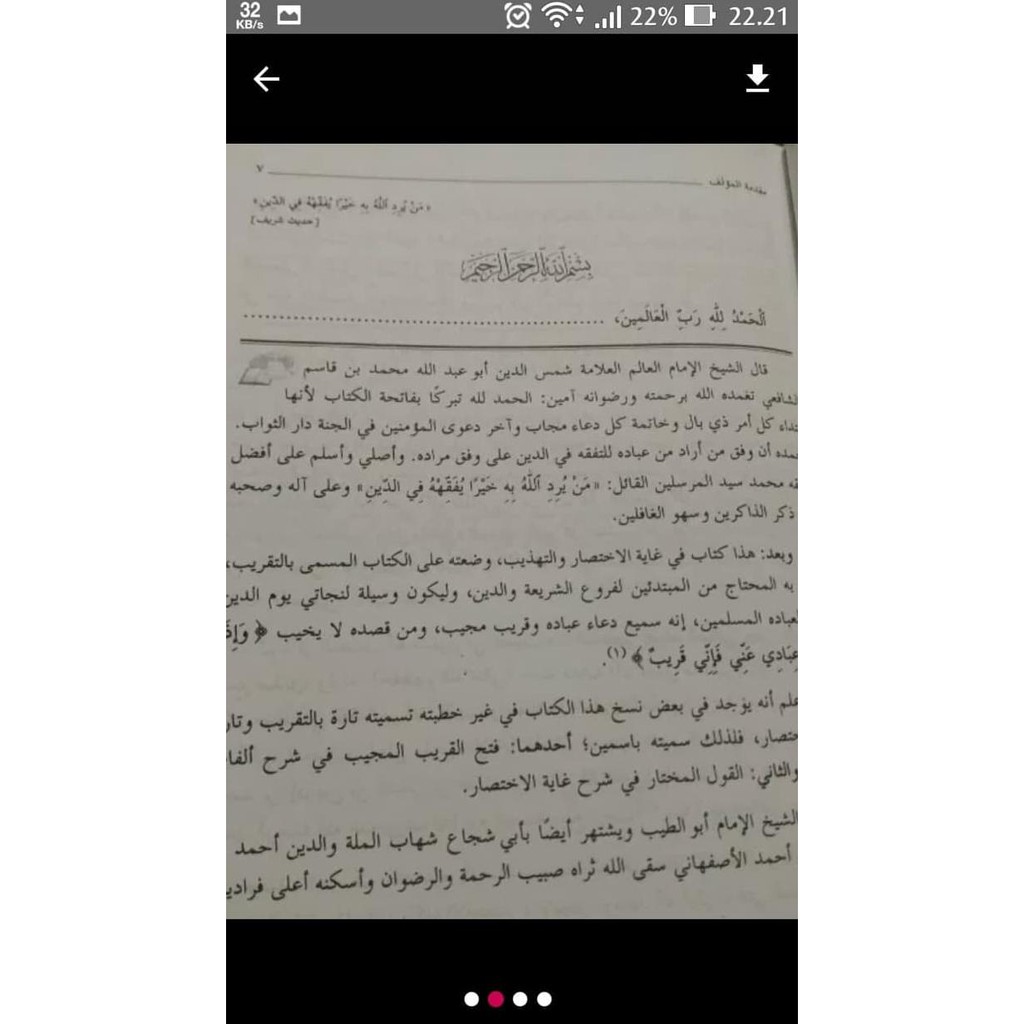 32
KB/s
22%
22.21
مقدمة المؤلف
٧
«مَنْ يُرِدِ ٱللَّهُ بِهِ خَيْرًا يُفَقِّهْهُ فِي الدِّينِ»
[حديث شريف]
بِسْمِ ٱللَّهِ ٱلرَّحْمَٰنِ ٱلرَّحِيمِ
ٱلْحَمْدُ لِلَّهِ رَبِّ الْعَالَمِينَ، ..........................................
قال الشيخ الإمام العالم العلامة شمس الدين أبو عبد الله محمد بن قاسم
الشافعي تغمده الله برحمته ورضوانه آمين: الحمد لله تبركًا بفاتحة الكتاب لأنها
تداء كل أمر ذي بال وخاتمة كل دعاء مجاب وآخر دعوى المؤمنين في الجنة دار الثواب.
مده أن وفق من أراد من عباده للتفقه في الدين على وفق مراده. وأصلي وأسلم على أفضل
قه محمد سيد المرسلين القائل: «مَنْ يُرِدِ ٱللَّهُ بِهِ خَيْرًا يُفَقِّهْهُ فِي الدِّينِ» وعلى آله وصحبه
ذكر الذاكرين وسهو الغافلين.
وبعد: هذا كتاب في غاية الاختصار والتهذيب، وضعته على الكتاب المسمى بالتقريب،
به المحتاج من المبتدئين لفروع الشريعة والدين، وليكون وسيلة لنجاتي يوم الدين
لعباده المسلمين، إنه سميع دعاء عباده وقريب مجيب، ومن قصده لا يخيب ﴿ وَإِذَ
عِبَادِي عَنِّي فَإِنِّي قَرِيبٌ ﴾(١).
علم أنه يوجد في بعض نسخ هذا الكتاب في غير خطبته تسميته تارة بالتقريب وتار
ختصار، فلذلك سميته باسمين؛ أحدهما: فتح القريب المجيب في شرح ألفا
والثاني: القول المختار في شرح غاية الاختصار.
الشيخ الإمام أبو الطيب ويشتهر أيضًا بأبي شجاع شهاب الملة والدين أحمد
أحمد الأصفهاني سقى الله ثراه صبيب الرحمة والرضوان وأسكنه أعلى فرادي